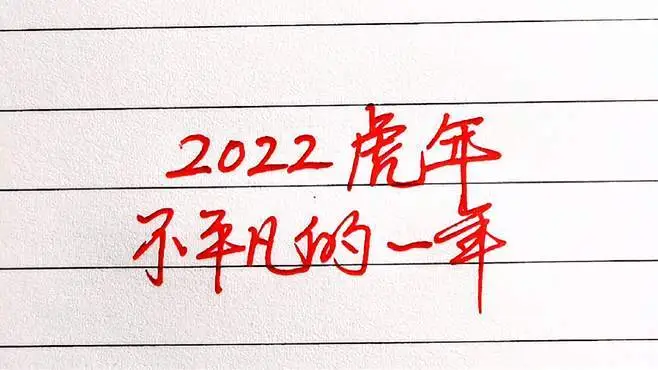 2022虎年
不平凡的一年